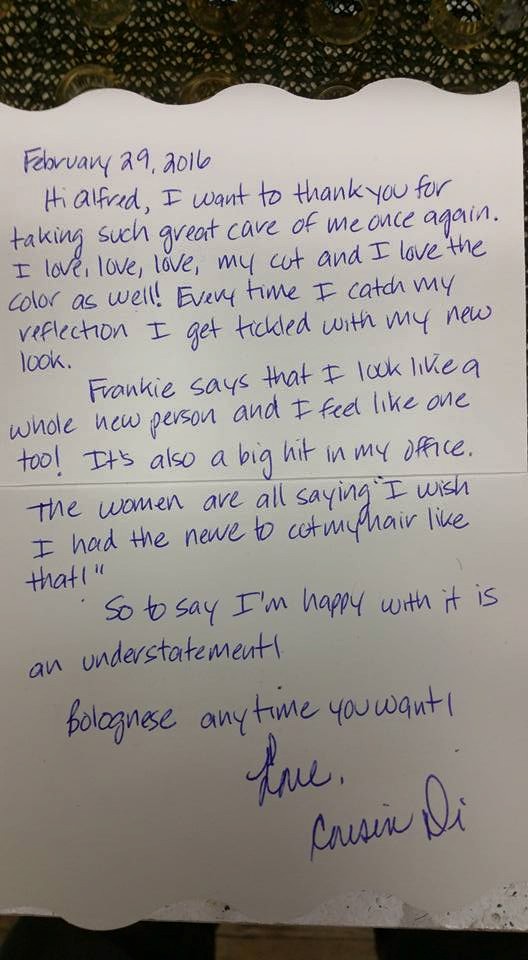 February 29, 2016
Hi Alfred, I want to thank you for
taking such great care of me once again.
I love, love, love, my cut and I love the
color as well! Every time I catch my
reflection I get tickled with my new
look.
Frankie says that I look like a
whole new person and I feel like one
too! It's also a big hit in my office.
The women are all saying "I wish
I had the nerve to cut my hair like
that!"
So to say I'm happy with it is
an understatement!
Bolognese anytime you want!
Love,
Cousin Di